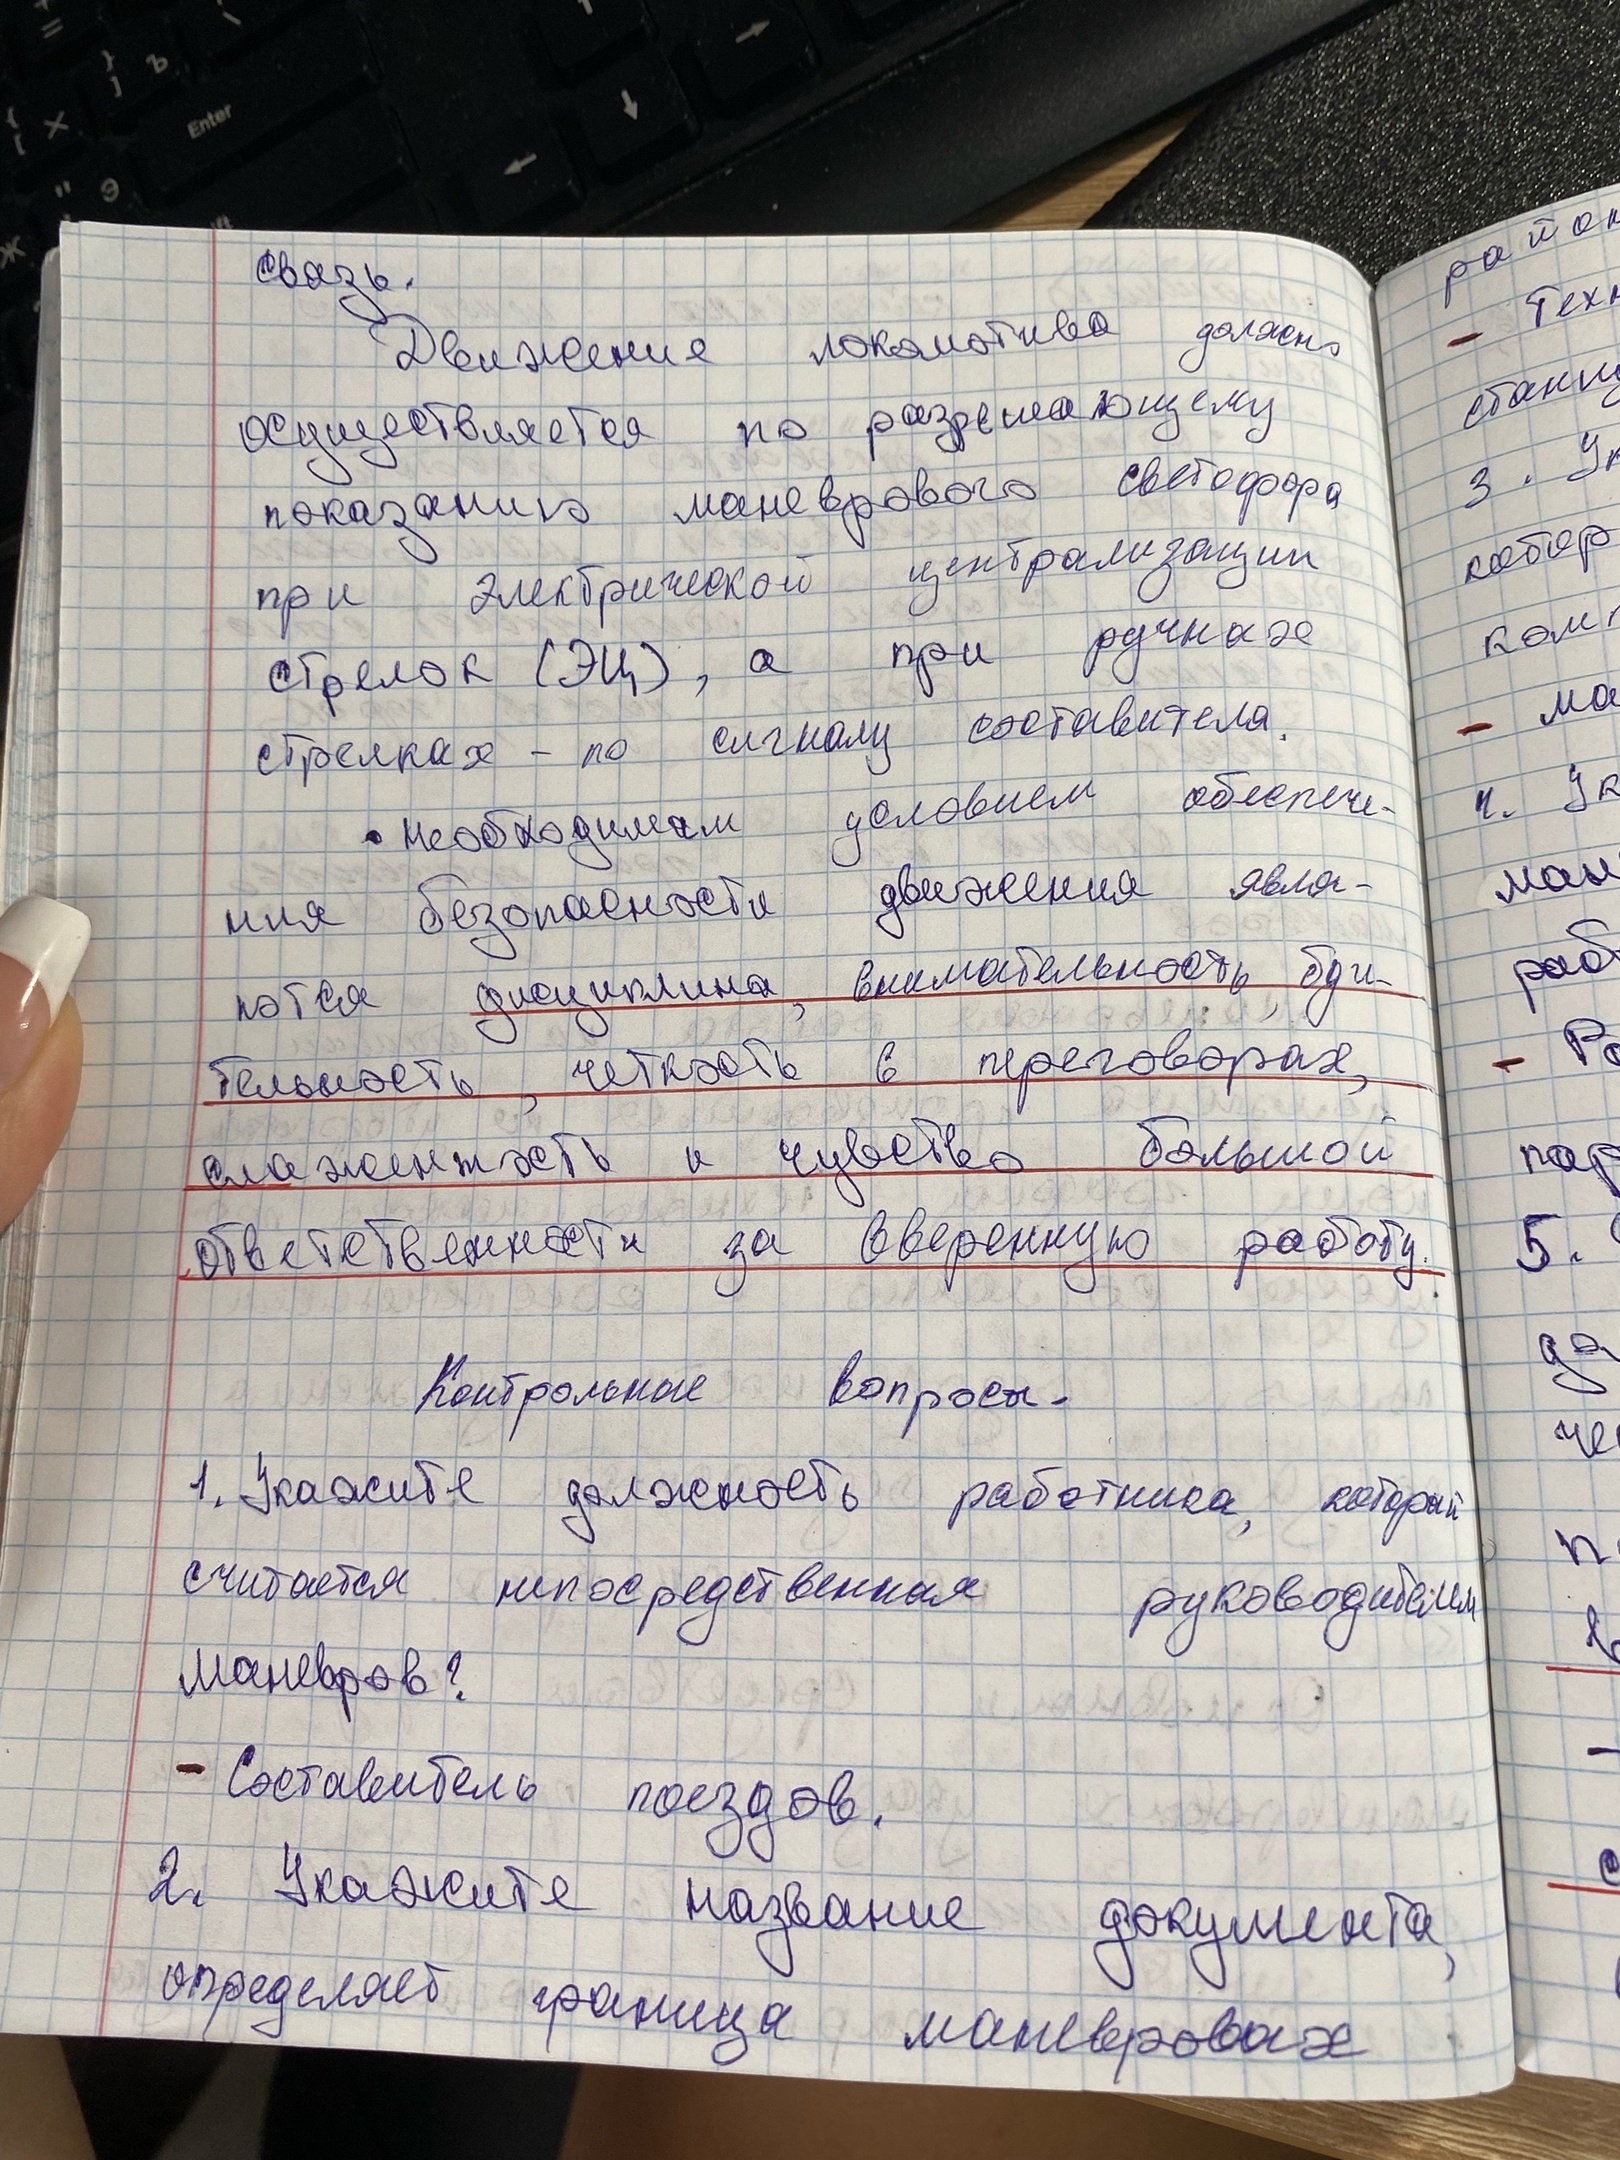 связь.
Движение локомотива должно
осуществляется по разрешающему
показанию маневрового светофора
при электрической централизации
стрелок (ЭЦ), а при ручных
стрелках - по сигналу составителя.
• Необходимым условием обеспече-
ния безопасности движения явля-
ются дисциплина, внимательность, бди-
тельность, четкость в переговорах,
слаженность и чувство большой
ответственности за вверенную работу.
Контрольные вопросы.
1. Укажите должность работника, который
считается непосредственная руководителем
маневров?
- Составитель поездов.
2. Укажите название документа,
определяет граница маневровых
район
- Техн
станц
3. Ук
котор
комп
- ма
4. Ук
ман
раб
- Ра
пар
5.
да
че
п
в
-
с
Enter